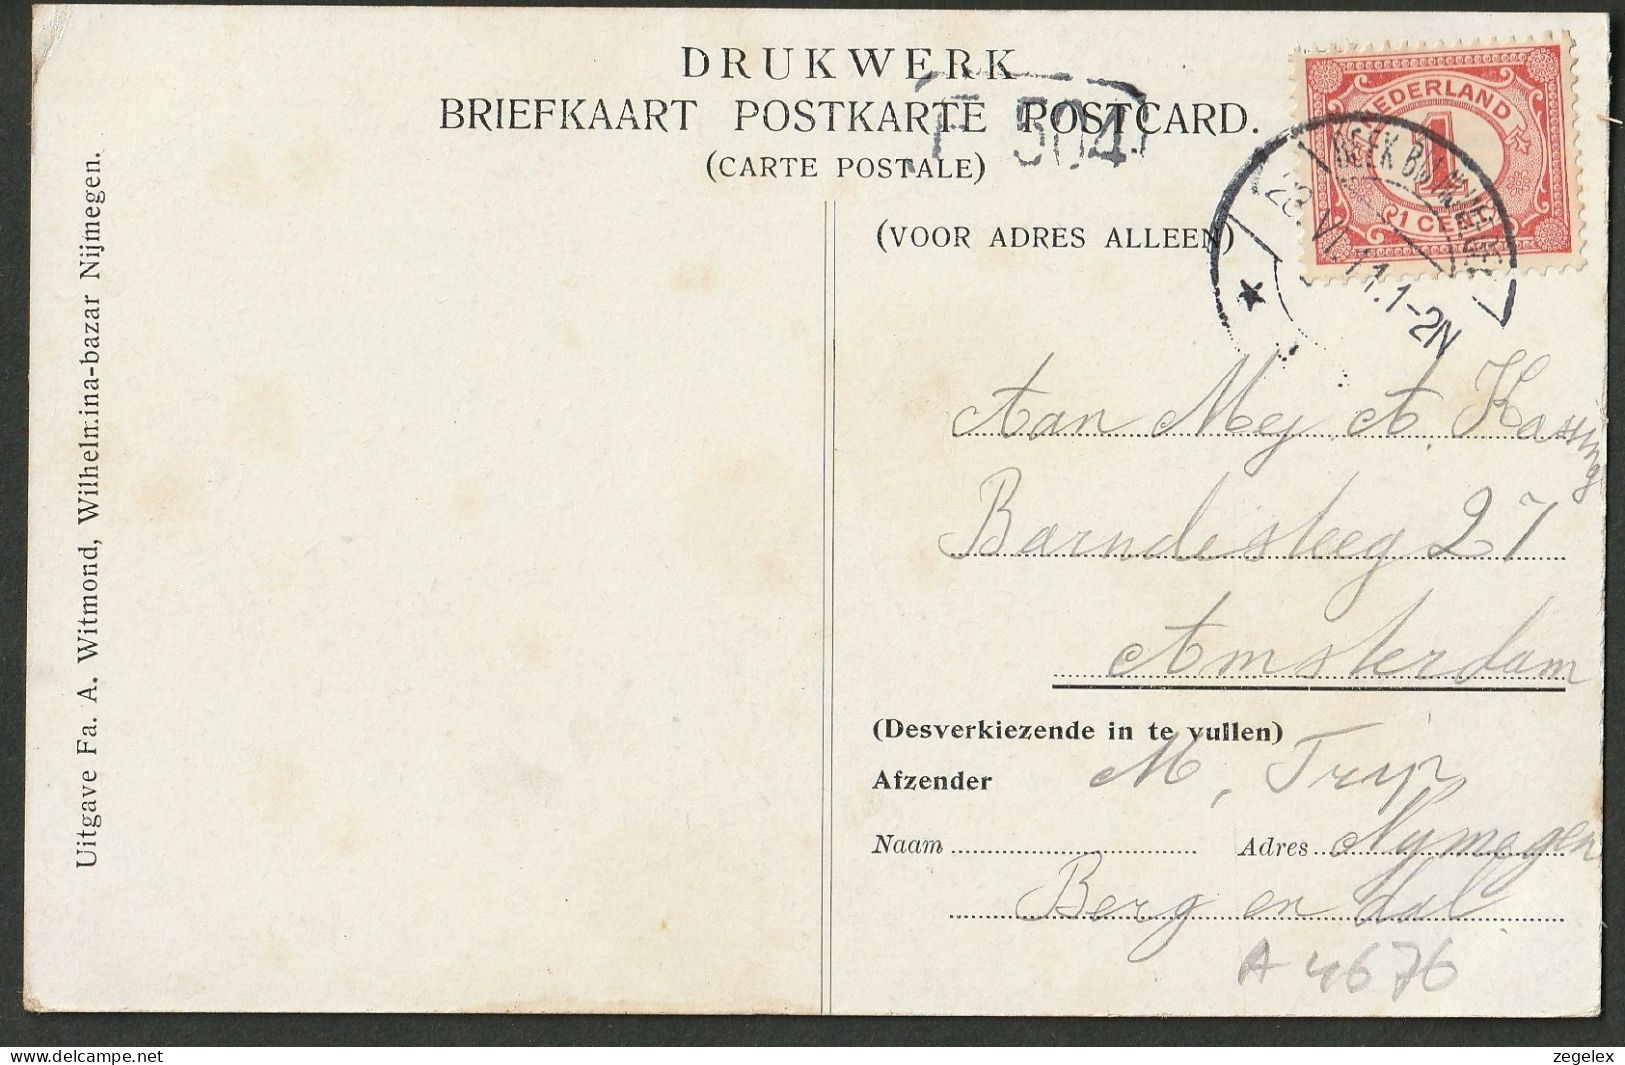 DRUKWERK
BRIEFKAART POSTKARTE POSTCARD.
(CARTE POSTALE)
F 504
(VOOR ADRES ALLEEN)
NEDERLAND
1
1 CENT
BEEK BIJ NIJMEGEN
28. 11.1-2N
Aan Mej. A. Kassing
Barndesteeg 27
Amsterdam
(Desverkiezende in te vullen)
Afzender M. Tryp
Naam Adres Nymegen
Berg en dal
A 4676
Uitgave Fa. A. Witmond, Wilhelmina-bazar Nijmegen.
delcampe.net
zegelex